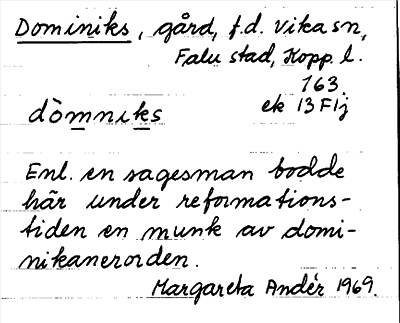 Dominiks, gård, f.d. Vika sn,
Falu stad, Kopp. l.
163.
ek 13 F1j
dòmniks
Enl. en sagesman bodde
här under reformations-
tiden en munk av domi-
nikanerorden.
Margareta Andér 1969.